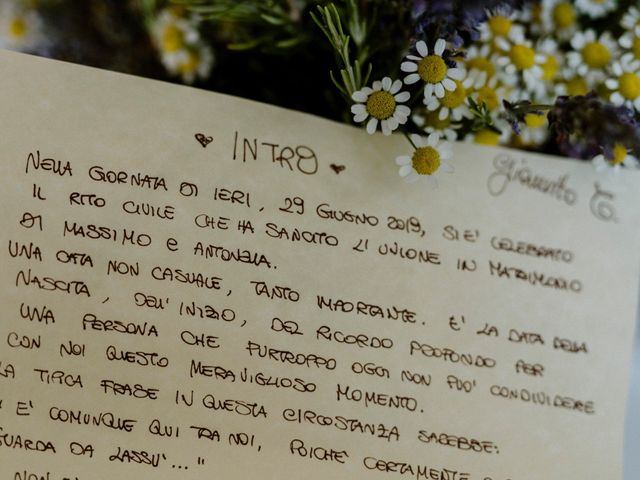 ♥ INTRO ♥
NELLA GIORNATA DI IERI, 29 GIUGNO 2019, SI E' CELEBRATO
IL RITO CIVILE CHE HA SANCITO L'UNIONE IN MATRIMONIO
DI MASSIMO E ANTONELLA.
UNA DATA NON CASUALE, TANTO IMPORTANTE. E' LA DATA DELLA
NASCITA, DELL'INIZIO, DEL RICORDO PROFONDO PER
UNA PERSONA CHE PURTROPPO OGGI NON PUO' CONDIVIDERE
CON NOI QUESTO MERAVIGLIOSO MOMENTO.
LA TIPICA FRASE IN QUESTA CIRCOSTANZA SAREBBE:
" E' COMUNQUE QUI TRA NOI, POICHE' CERTAMENTE
GUARDA DA LASSU'..."
NON